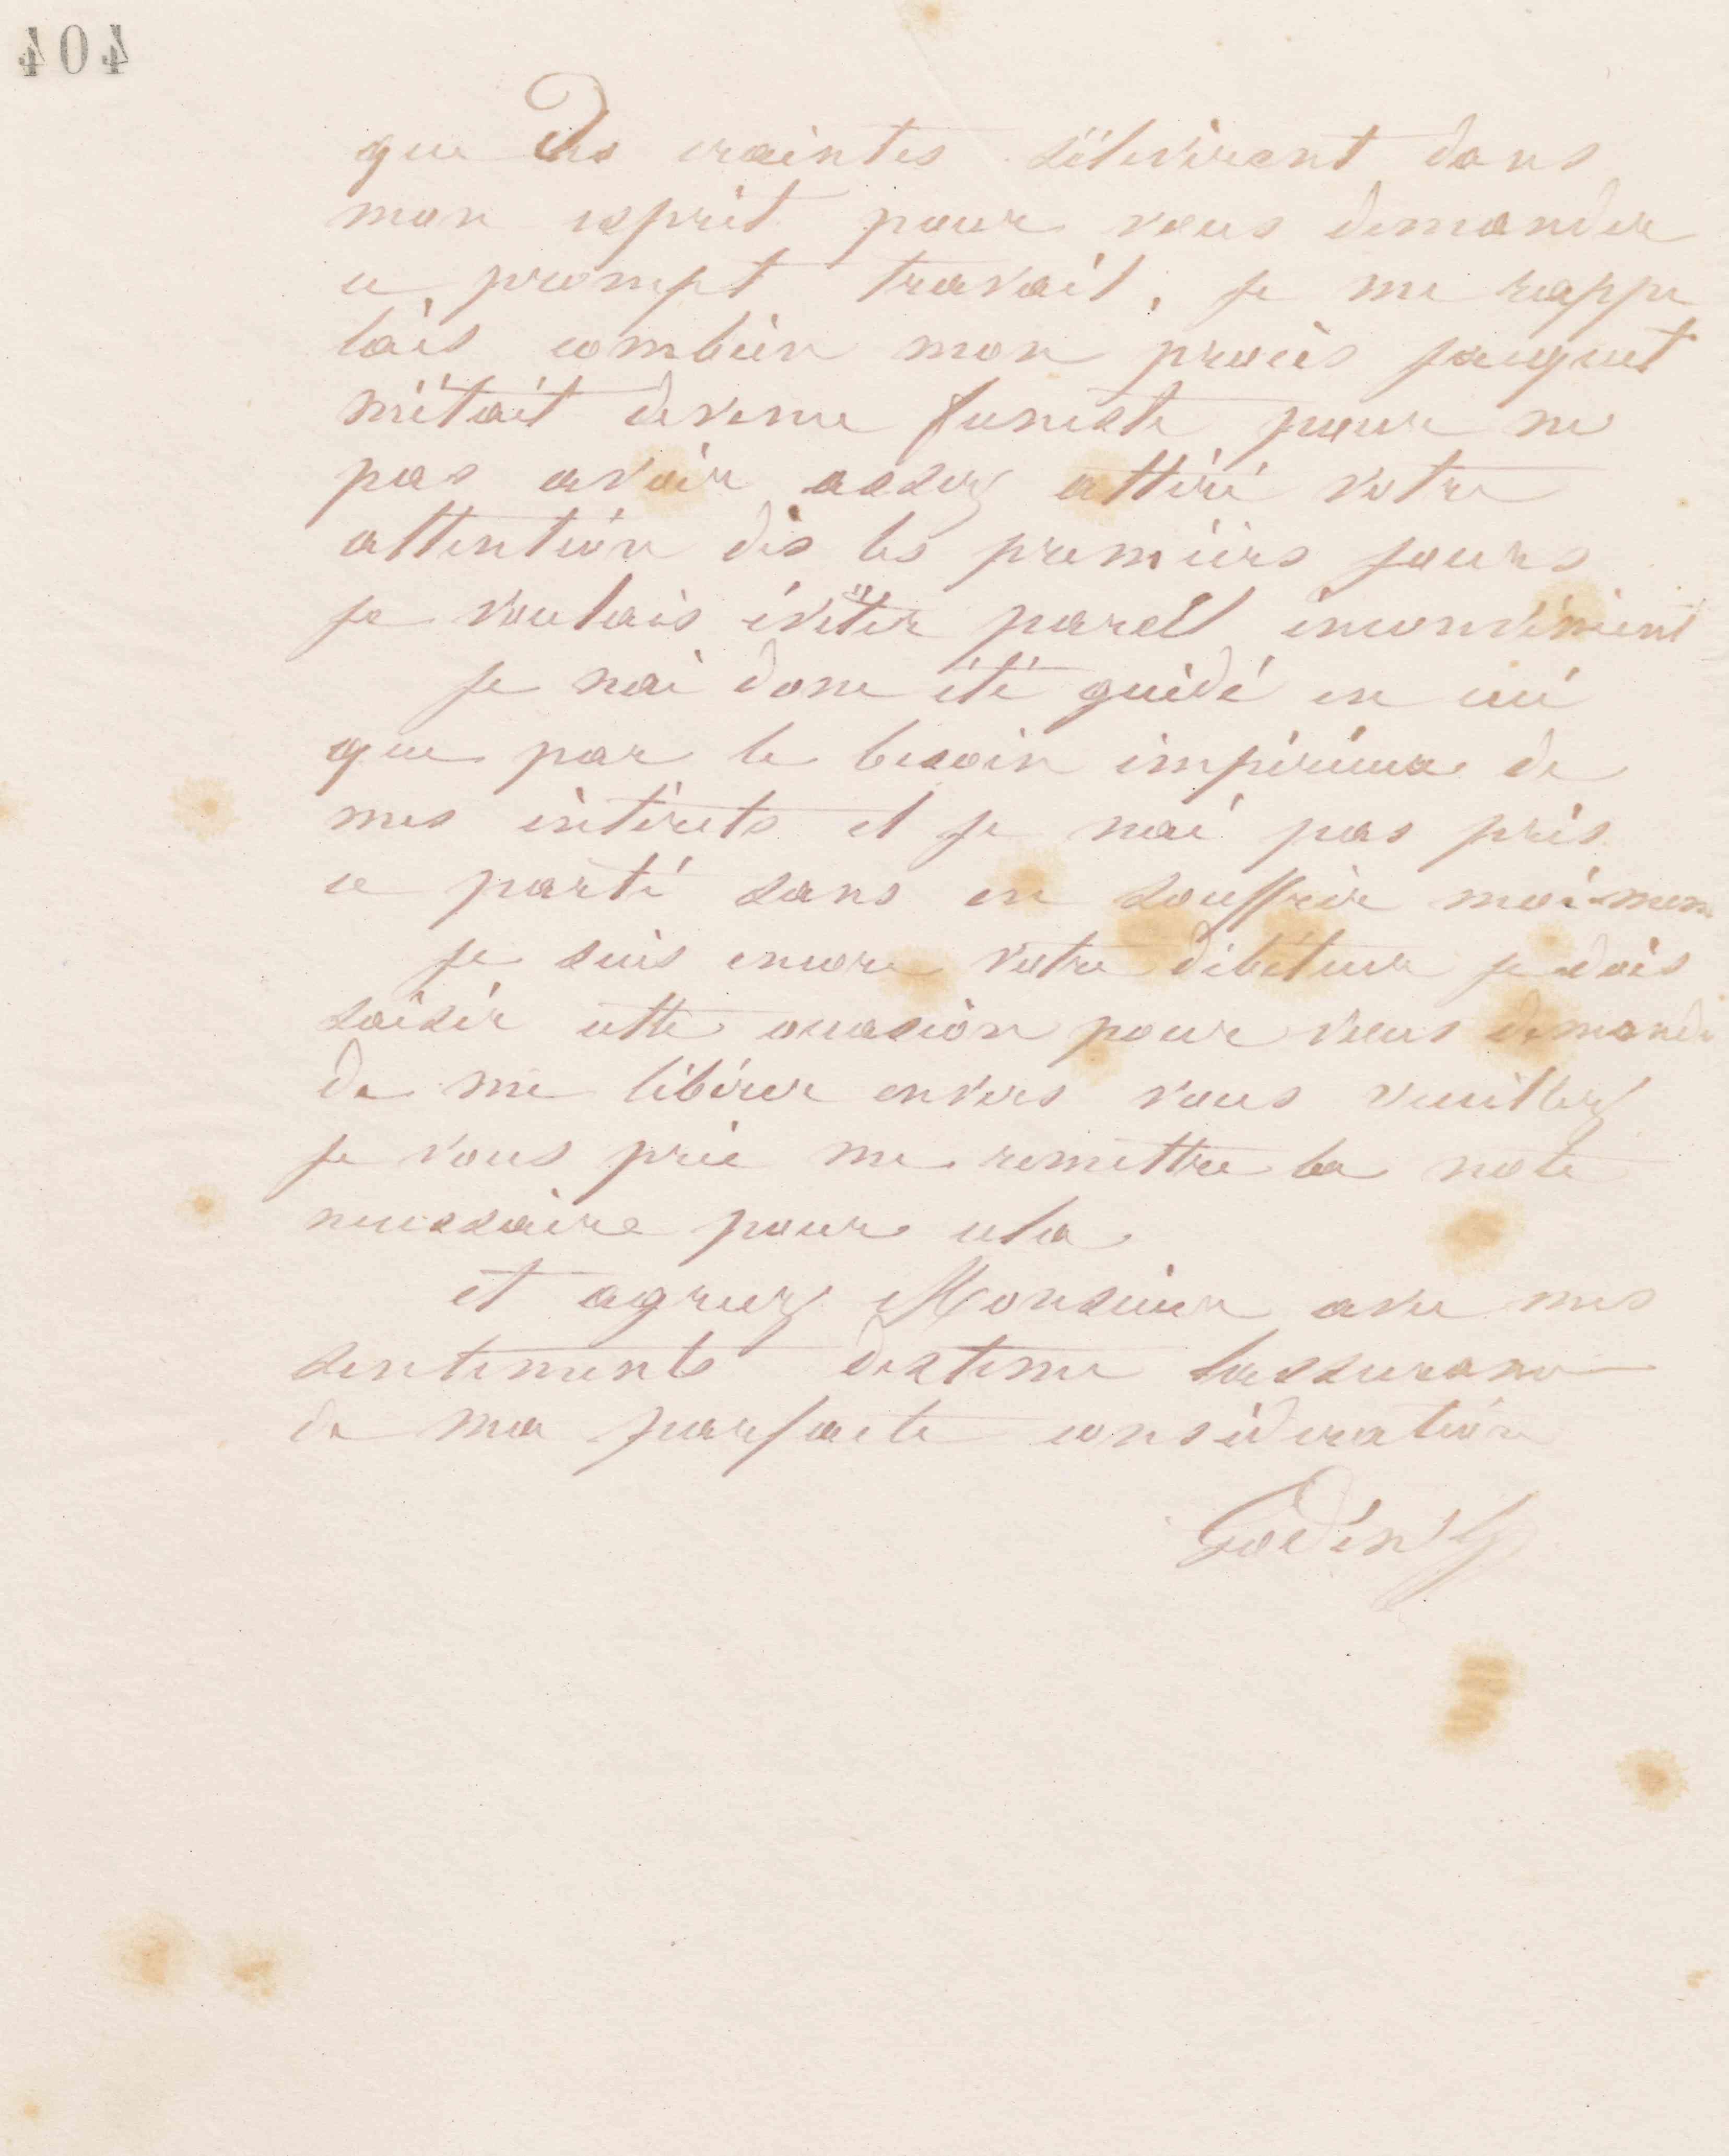 404
que des craintes s'élevèrent dans
mon esprit pour vous demander
ce prompt travail, je me rappe
lais combien mon procès
m'était devenu funeste pour ne
pas avoir assez attiré votre
attention dès les premiers jours
je voulais éviter pareil inconvénient
je nai donc été guidé en ceci
que par le besoin impérieux de
mes intérets et je nai pas pris
ce parti sans en souffrir moi-mem
je suis encore votre débiteur je dois
saisir cette occasion pour vous demande
de me libérer envers vous veuillez
je vous prie me remettre la note
necessaire pour cela
et agreez Monsieur avec mes
sentiments destime lassurance
de ma parfaite considération
Godin